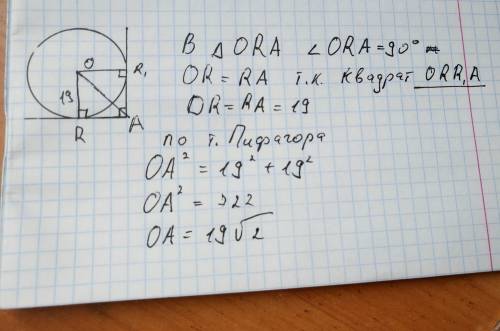 О
R₁
19
R
A
В △ ORA ∠ ORA = 90°
OR = RA т.к. квадрат ORR₁A
OR = RA = 19
по т. Пифагора
OA² = 19² + 19²
OA² = 722
OA = 19√2